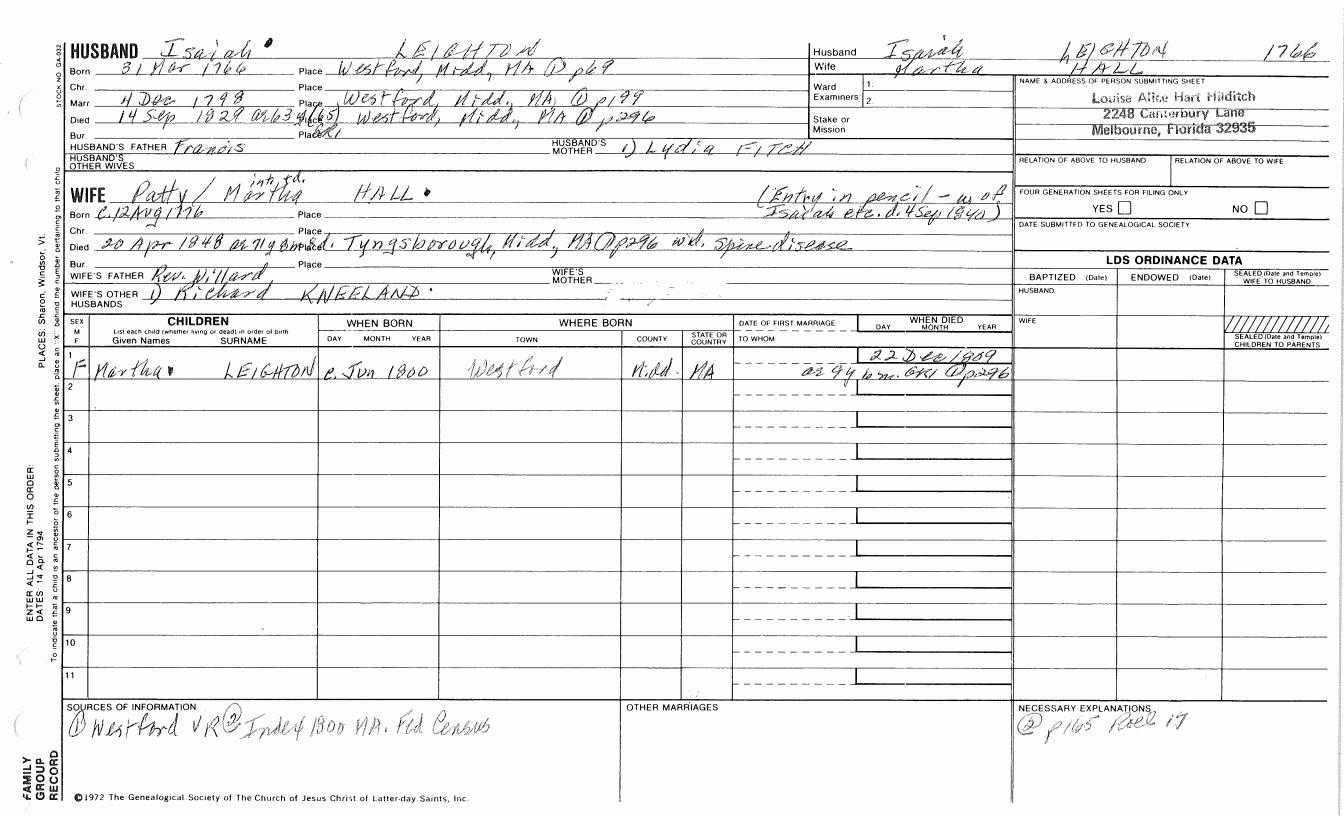 HUSBAND Isaiah LEIGHTON
Born 31 Mar 1766 Place Westford, Midd, MA ① p69
Chr. Place
Marr. 4 Dec 1798 Place Westford, Midd, MA, ① p199
Died 14 Sep 1829 Place Westford, Midd, MA ① p296
Bur. Place GR1
HUSBAND'S FATHER Francis HUSBAND'S MOTHER 1) Lydia FITCH
HUSBAND'S OTHER WIVES
int, rd.
WIFE Patty / Martha HALL (Entry in pencil - w of
Born c. 12 Aug 1776 Place Isaiah etc. d. 4 Sep 1840)
Chr. Place
Died 20 Apr 1848 Tyngsborough, Midd, MA ① p296 wd. spine disease
Bur. Place
WIFE'S FATHER Rev. Willard WIFE'S MOTHER
WIFE'S OTHER HUSBANDS 1) Richard KNEELAND
Husband Isaiah LEIGHTON 1766
Wife Martha HALL
Ward Examiners 1. 2.
Stake or Mission
NAME & ADDRESS OF PERSON SUBMITTING SHEET
Louise Alice Hart Hilditch
2248 Canterbury Lane
Melbourne, Florida 32935
RELATION OF ABOVE TO HUSBAND RELATION OF ABOVE TO WIFE
FOUR GENERATION SHEETS FOR FILING ONLY
YES NO
DATE SUBMITTED TO GENEALOGICAL SOCIETY
LDS ORDINANCE DATA
BAPTIZED (Date) ENDOWED (Date) SEALED (Date and Temple) WIFE TO HUSBAND
HUSBAND
WIFE
SEALED (Date and Temple) CHILDREN TO PARENTS
SEX M F CHILDREN WHEN BORN WHERE BORN DATE OF FIRST MARRIAGE WHEN DIED
List each child (whether living or dead) in order of birth
Given Names SURNAME DAY MONTH YEAR TOWN COUNTY STATE OR COUNTRY TO WHOM DAY MONTH YEAR
22 Dec 1809
1 F Martha LEIGHTON c. Jun 1800 Westford Midd. MA ae 9y 6 m. GR1 ① p296
2
3
4
5
6
7
8
9
10
11
SOURCES OF INFORMATION
① Westford VR ② Index 1800 MA. Fed Census
OTHER MARRIAGES
NECESSARY EXPLANATIONS
② p165 Roll 17
©1972 The Genealogical Society of The Church of Jesus Christ of Latter-day Saints, Inc.
STOCK NO. GA-032
To indicate that a child is an ancestor of the person submitting the sheet, place an "X" behind the number pertaining to that child.
PLACES: Sharon, Windsor, Vt.
ENTER ALL DATA IN THIS ORDER:
DATES: 14 Apr 1794
FAMILY GROUP RECORD